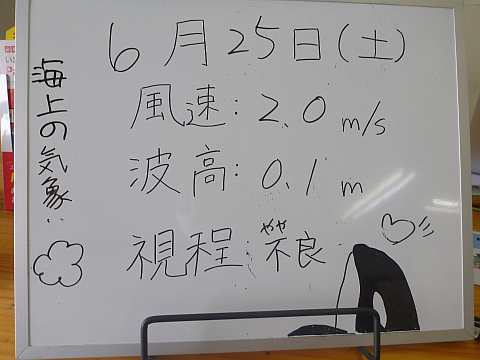 6月25日(土)
海上の気象:
風速: 2.0 m/s
波高: 0.1 m
視程: やや不良